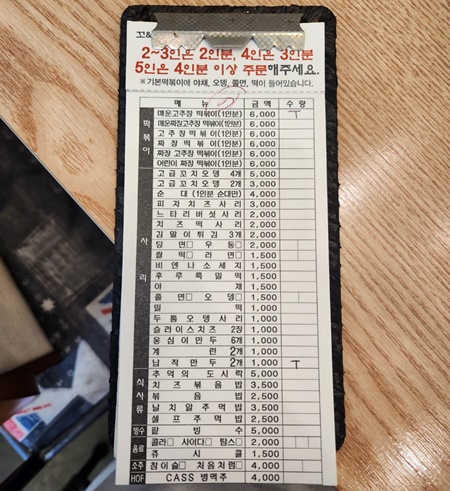 꼬&
2~3인은 2인분, 4인은 3인분
5인은 4인분 이상 주문해주세요.
※기본떡볶이에 야채, 오뎅, 쫄면, 떡이 들어있습니다.
메 뉴 금 액 수 량
떡볶이
매운고추장 떡볶이(1인분) 6,000 T
매운짜장고추장 떡볶이(1인분) 6,000
고추장떡볶이(1인분) 6,000
짜장떡볶이(1인분) 6,000
짜장 고추장 떡볶이(1인분) 6,000
어린이 짜장 떡볶이(1인분) 6,000
사리
고급꼬치오뎅 4개 5,000
고급꼬치오뎅 2개 3,000
순 대 (1인분 순대만) 4,000
피자치즈사리 3,000
느타리버섯사리 2,000
치즈떡사리 2,000
김말이튀김 3개 2,000
당면□ 우동□ 2,000
쌀떡□ 라면□ 1,500
비엔나소세지 1,500
후루룩밀떡 1,500
야채 1,500
쫄면□ 오뎅□ 1,500
밀떡 1,000
두툼오뎅사리 1,000
슬라이스치즈 2장 1,000
옹심이만두 6개 1,000
계란 2개 1,000
납작만두 2개 1,000 T
식사류
추억의도시락 5,000
치즈볶음밥 3,500
볶음밥 2,500
날치알주먹밥 3,500
셀프주먹밥 2,500
빙수 팥빙수 5,000
음료 콜라□ 사이다□ 탐스□ 2,000
쥬시쿨 1,500
소주 참이슬□ 처음처럼□ 4,000
HOF CASS 병맥주 4,000